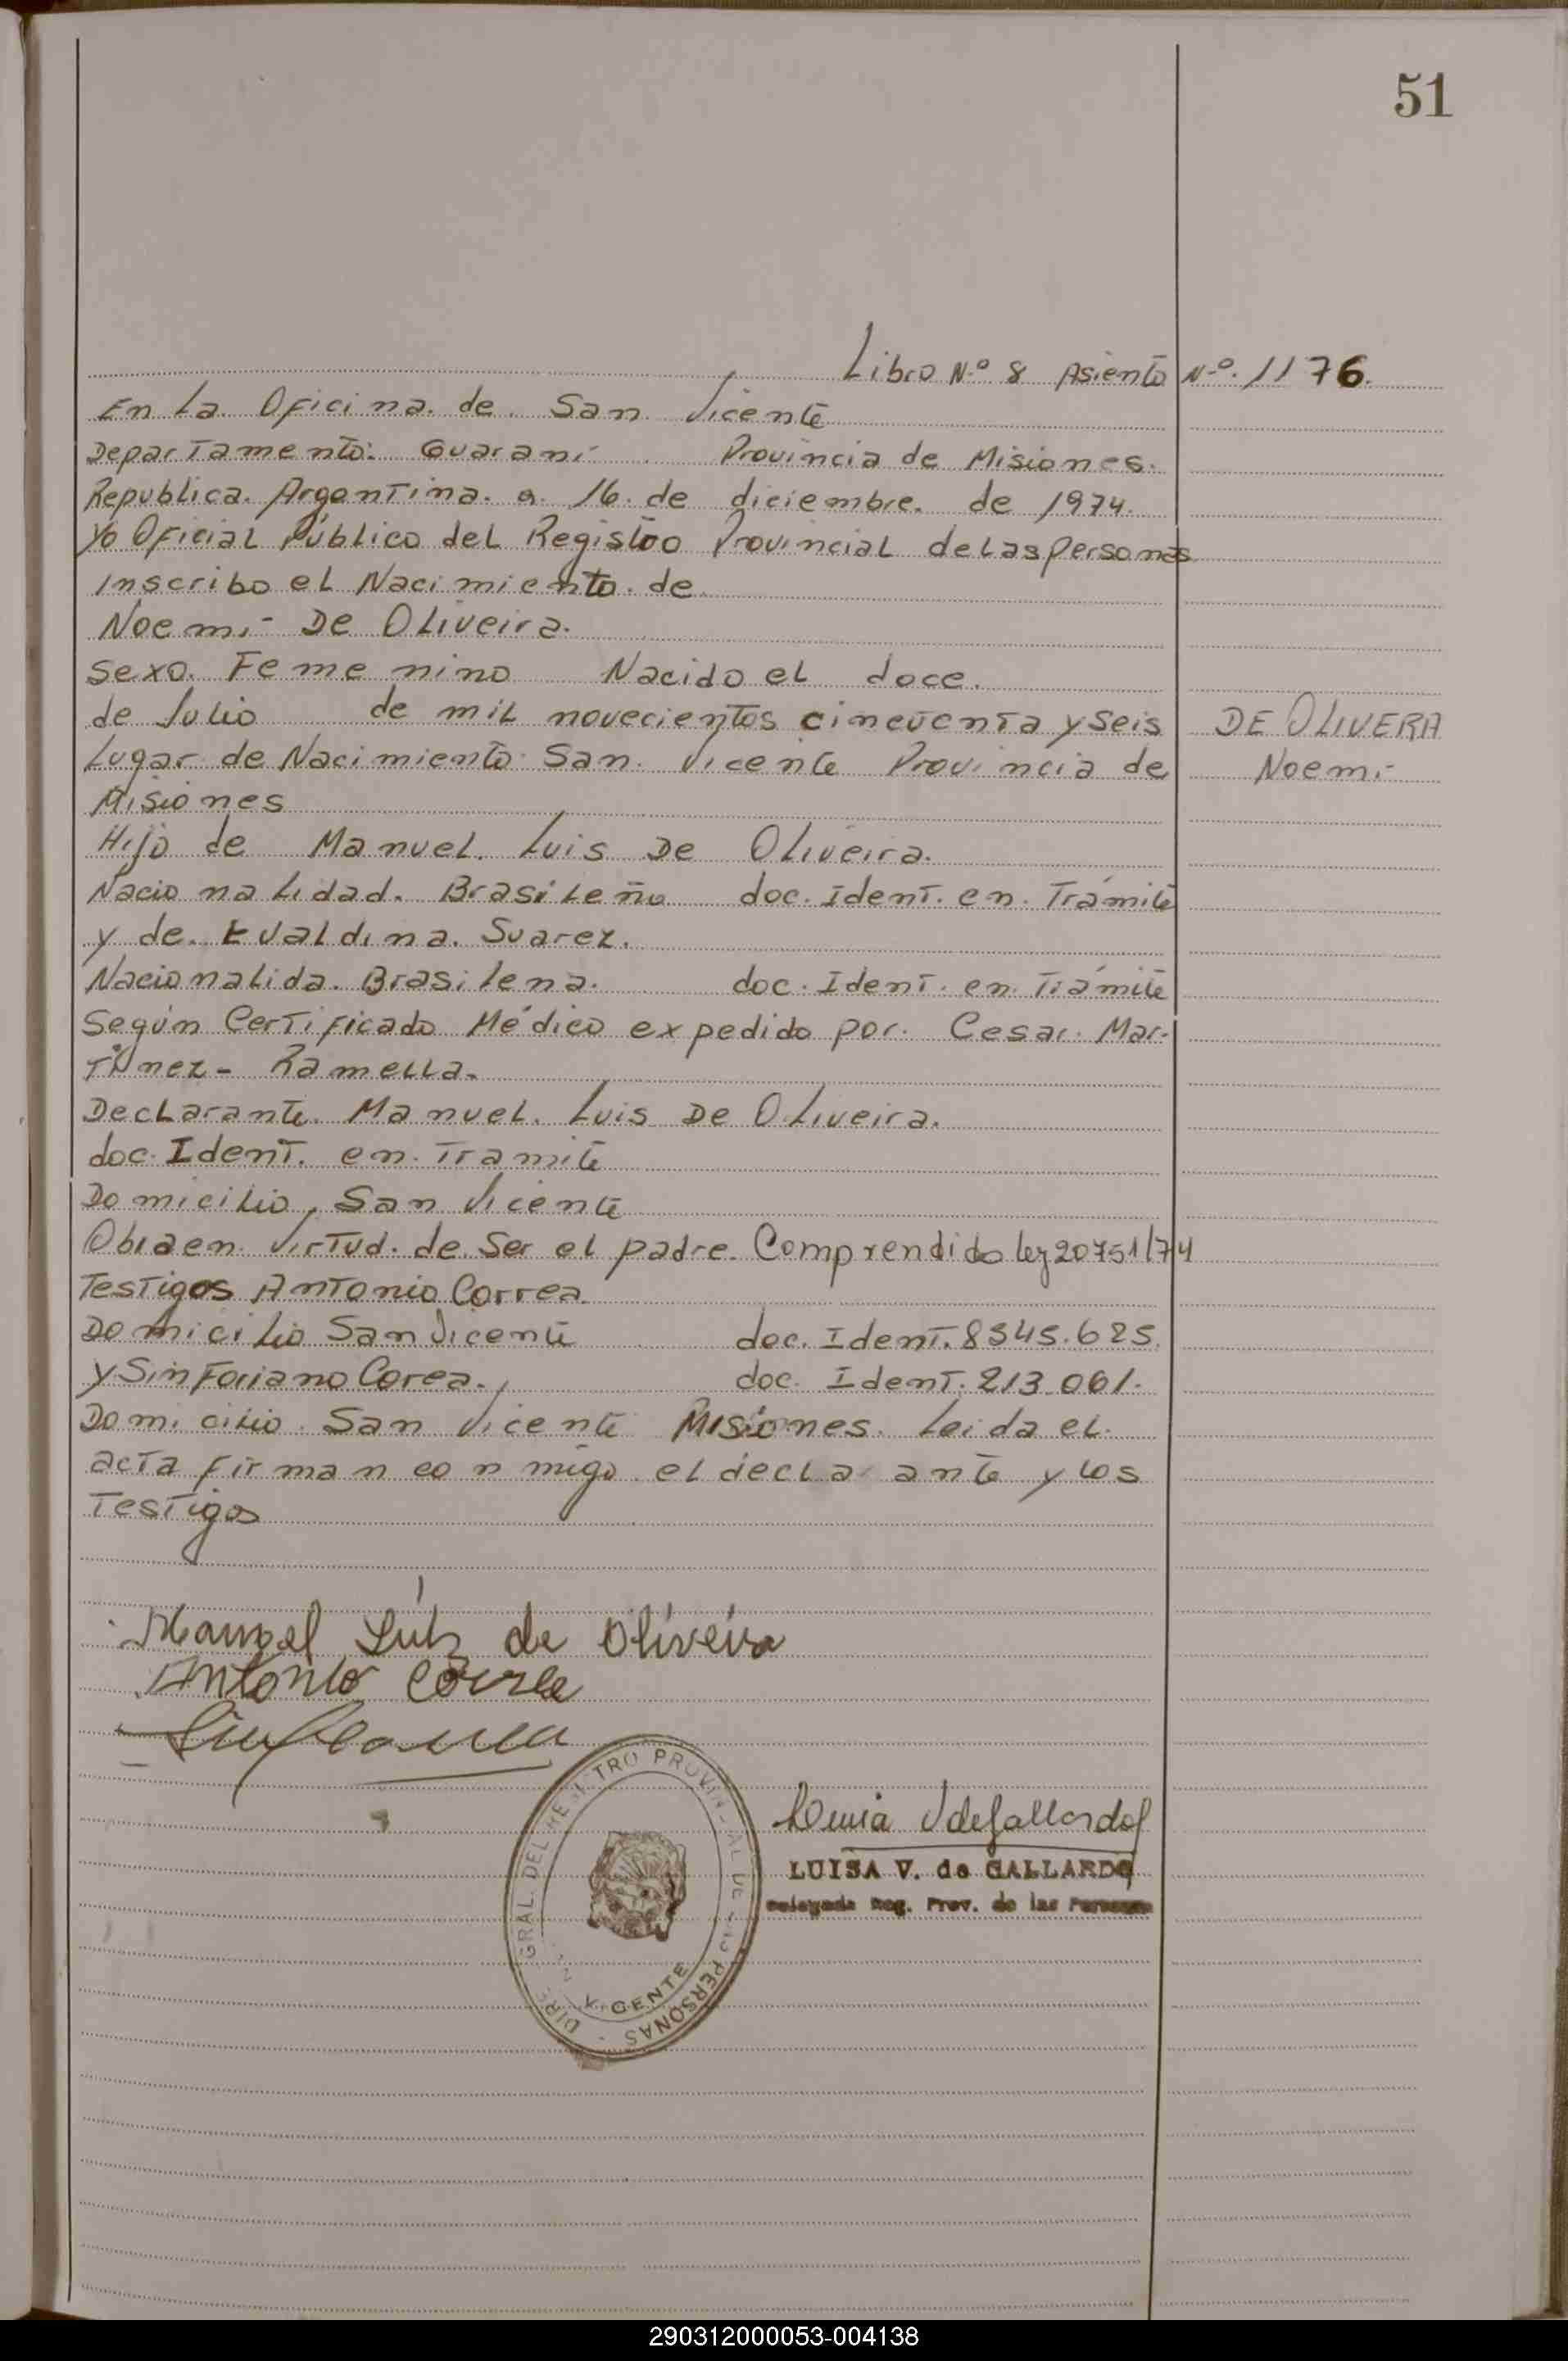 51
Libro N.º 8 Asiento N.º 1176.
En La Oficina de San Vicente
Departamento: Guaraní Provincia de Misiones.
Republica. Argentina. a. 16. de diciembre. de 1974.
Yo Oficial Público del Registro Provincial de las personas
Inscribo el Nacimiento. de
Noemí De Oliveira.
Sexo. Femenino Nacido el doce.
de Julio de mil novecientos cincuenta y seis
DE OLIVERA
Lugar de Nacimiento San. Vicente Provincia de
Noemí
Misiones
Hijo de Manuel. Luis De Oliveira.
Nacionalidad. Brasileña doc. Ident. en. Trámite
y de. Evaldina. Suarez.
Nacionalida. Brasilena. doc. Ident. en. Trámite
Según Certificado Médico expedido por. Cesar. Mar-
tinez - Ramella.
Declarante. Manuel. Luis De Oliveira.
doc. Ident. en. Tramite
Domicilio, San Vicente
Obra en. Virtud. de Ser el padre. Comprendido ley 20751/74
Testigos Antonio Correa.
Domicilio San Vicente doc. Ident. 8545.625.
y Sinforiano Corea., doc. Ident. 213.061.
Domicilio. San Vicente Misiones. Leida el.
acta firman conmigo. el declarante y los
Testigos
Manoel Luiz de Oliveira
Antonio Correa
DIRE GRAL. DEL REGISTRO PROVINCIAL DE LAS PERSONAS
VICENTE
LUISA V. de GALLARDO
Delegada Reg. Prov. de las Personas
290312000053-004138